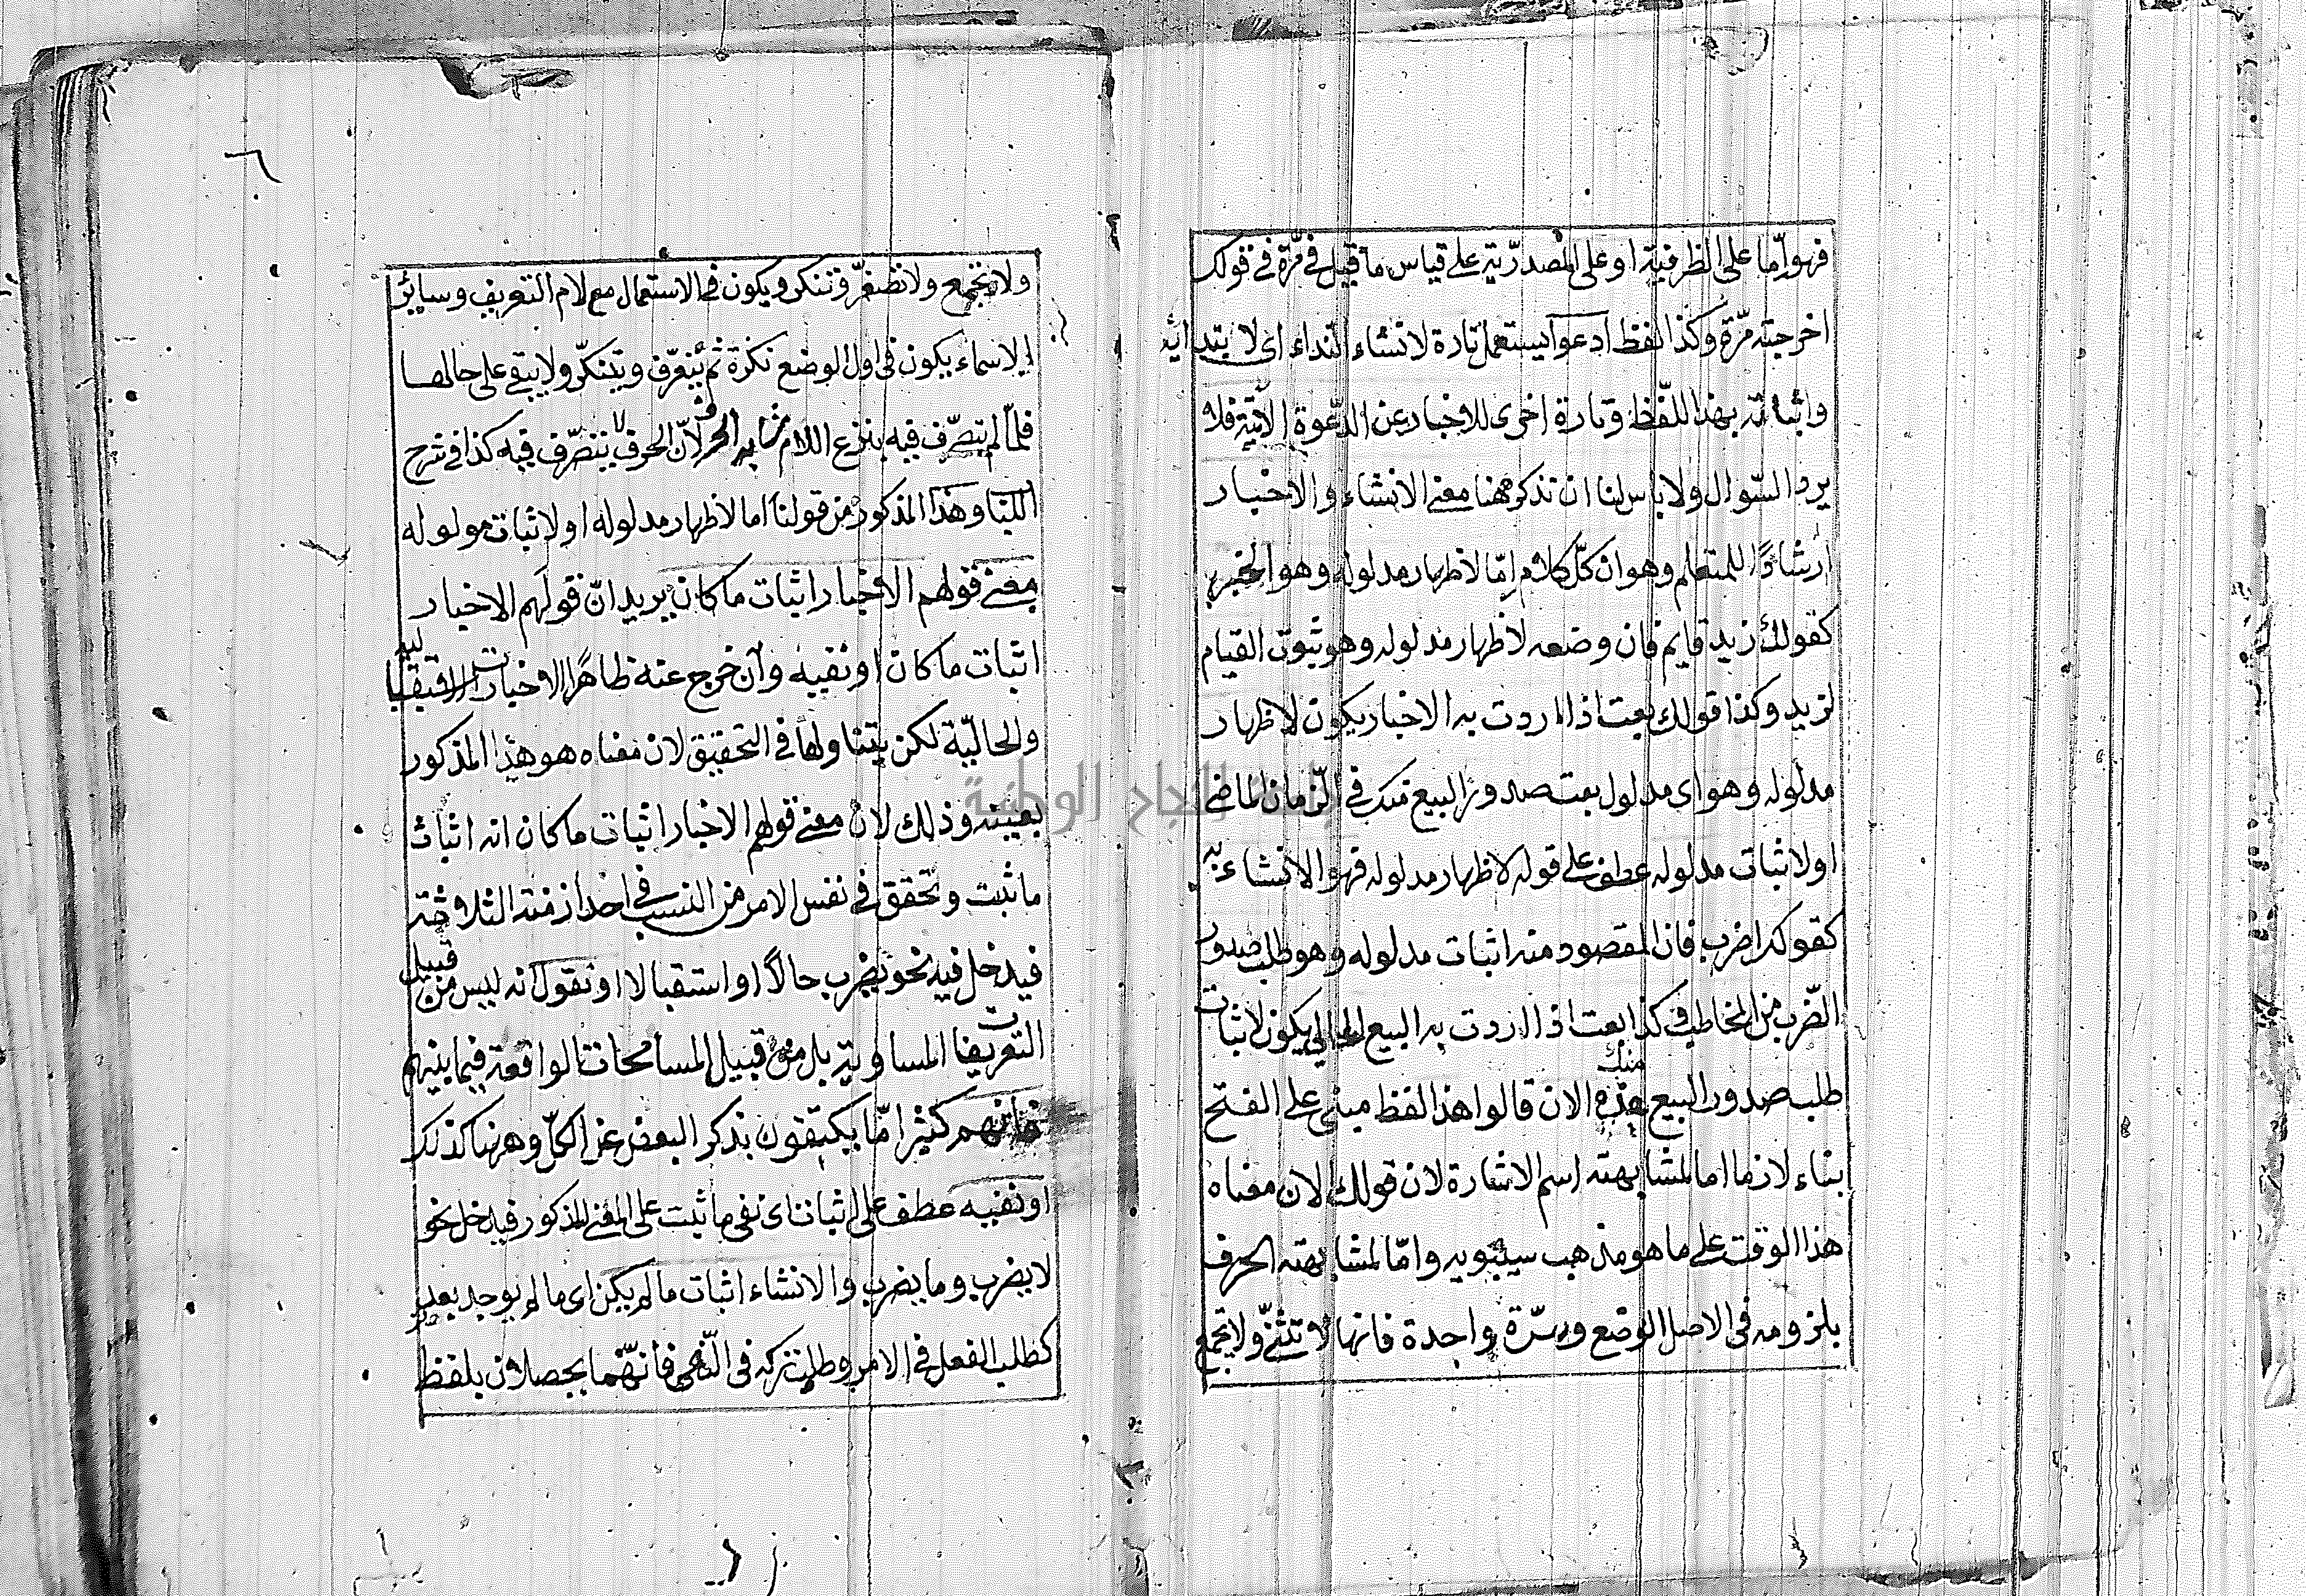 فهو اما على الظرفية او على المصدرية على قياس ما قيل في مرة في قولك
اخرجته مرة وكذا لفظ ادعو يستعمل تارة لانشاء النداء اى لابتدائه
واثباته بهذا اللفظ وتارة اخرى للاخبار عن الدعوة الاتية فلا
يرد السوال ولا باس لنا ان نذكر ههنا معنى الانشاء والاخبار
ارشادا للمتعلم وهو ان كل كلام اما لاظهار مدلوله وهو الخبر
كقولك زيد قايم فان وضعه لاظهار مدلوله وهو ثبوت القيام
لزيد وكذا قولك بعت اذا اردت به الاخبار يكون لاظهار
مدلوله وهو اى مدلول بعت صدور البيع منك في الزمان الماضى
او لاثبات مدلوله عطف على قوله لاظهار مدلوله فهو الانشاء
كقولك اضرب فان المقصود منه اثبات مدلوله وهو طلب صدور
الضرب من المخاطب وكذا بعت اذا اردت به البيع الحالي يكون لاثبات
طلب صدور البيع منك هذه الان قالوا هذا لفظ مبنى على الفتح
بناء لازما اما لمشابهته اسم الاشارة لان قولك الان معناه
هذا الوقت على ما هو مذهب سيبويه واما لمشابهته الحرف
بلزومه في الاصل الوضع مرة واحدة فانها لا تثنى ولا تجمع
ولا تجمع ولا تصغر وتنكر ويكون في الاستعمال مع لام التعريف وسائر
الاسماء يكون في اول الوضع نكرة ثم يتعرف ويتنكر ولا يبقى على حالها
فلما لم يتصرف فيه بنزع اللام شابه الحرف لان الحرف لا يتصرف فيه كذا في شرح
اللباب وهذا المذكور من قولنا اما لاظهار مدلوله او لاثبات مولوله
معنى قولهم الاخبار اثبات ما كان يريد ان قولهم الاخبار
اثبات ما كان او نفيه وان خرج عنه ظاهرا الاخبارات الاستقبالية
والحالية لكن يتناولها في التحقيق لان معناه هو هذا المذكور
بعينه وذلك لان معنى قولهم الاخبار اثبات ما كان انه اثبات
ما ثبت وتحقق في نفس الامر من النسب في احد ازمنة الثلاثة
فيدخل فيه نحو يضرب حالا او استقبالا او نقول انه ليس من قبيل
التعريفات المساوية بل من قبيل المسامحات الواقعة فيما بينهم
فانهم كثيرا ما يكتفون بذكر البعض عن الكل وههنا كذلك
او نفيه عطف على الاثبات اى نفى ما ثبت على المعنى المذكور فيدخل نحو
لا يضرب وما يضرب والانشاء اثبات ما لم يكن اى ما لم يوجد بعد
كطلب الفعل في الامر وطلب تركه في النهى فانهما يحصلان بلفظ
جامعة النجاح الوطنية